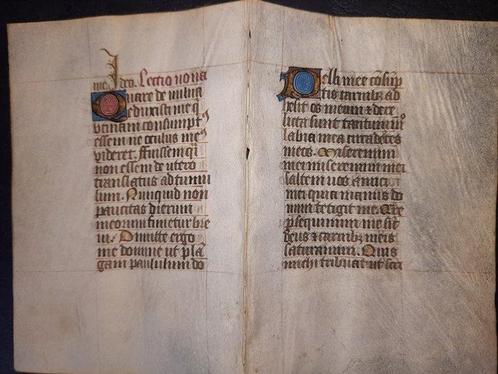 me. Ideo. Lectio nona
Quare de vulva
eduxisti me q
utinam consumpt
essem ne oculus me
videret. fuissem qi
non essem de utero
translatus ad tumu
lum. Nunquid non
paucitas dierum
meorum finietur bre
vi. Dimitte ergo
me domine ut pla
gam paululum do
Pelli mee cōsup
tis carnibz ad
hesit os meum et dere
licta sunt tantum
labia mea circa dentes
meos. Miseremini
mei miseremini mei
saltem vos amici
mei quia manus do
mini tetigit me. Qre
persequimini me sic
deus et carnibz meis
saturamini. Quis
michi tribuat ut scri